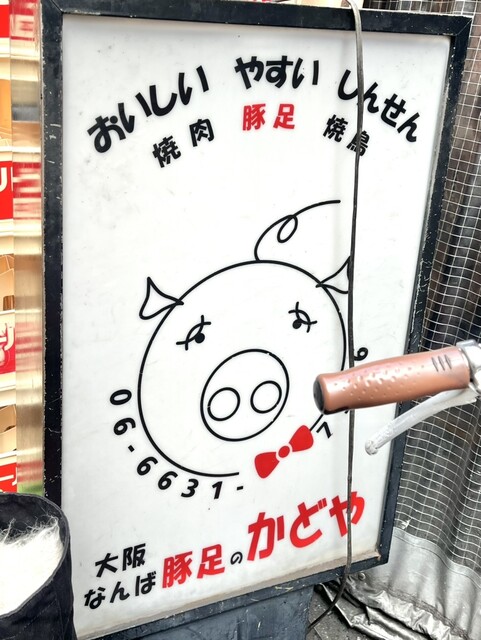 おいしい やすい しんせん
焼肉 豚足 焼鳥
06-6631-7
大阪
なんば豚足のかどや